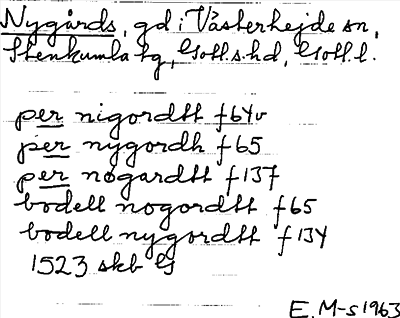 Nygårds, gd i Västerhejde sn,
Stenkumla tg, Gotl. s. hd, Gotl. l.
per nigordh f64v
per nygordh f65
per nøgardh f137
bodell nogordh f65
bodell nygordh f134
1523 skb G
E. M-s 1963